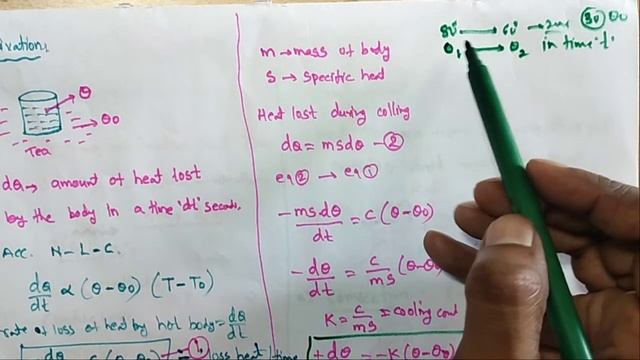 ivation,
θ
θ0
Tea
dQ → amount of heat lost
by the body in a time 'dt' seconds.
Acc. N-L-C.
dQ/dt ∝ (θ-θ0) (T-T0)
rate of loss of heat by hot body = dQ/dt
loss heat / time
m → mass of body
s → specific heat
Heat lost during colling
dQ = msdθ - ②
eq ② → eq ①
-msdθ/dt = c(θ-θ0)
-dθ/dt = c/ms (θ-θ0)
K = c/ms = cooling cont
+dθ = -K(θ-θ0)
80° → 60° → 2min 30 θ0
θ1 → θ2 in time 't'